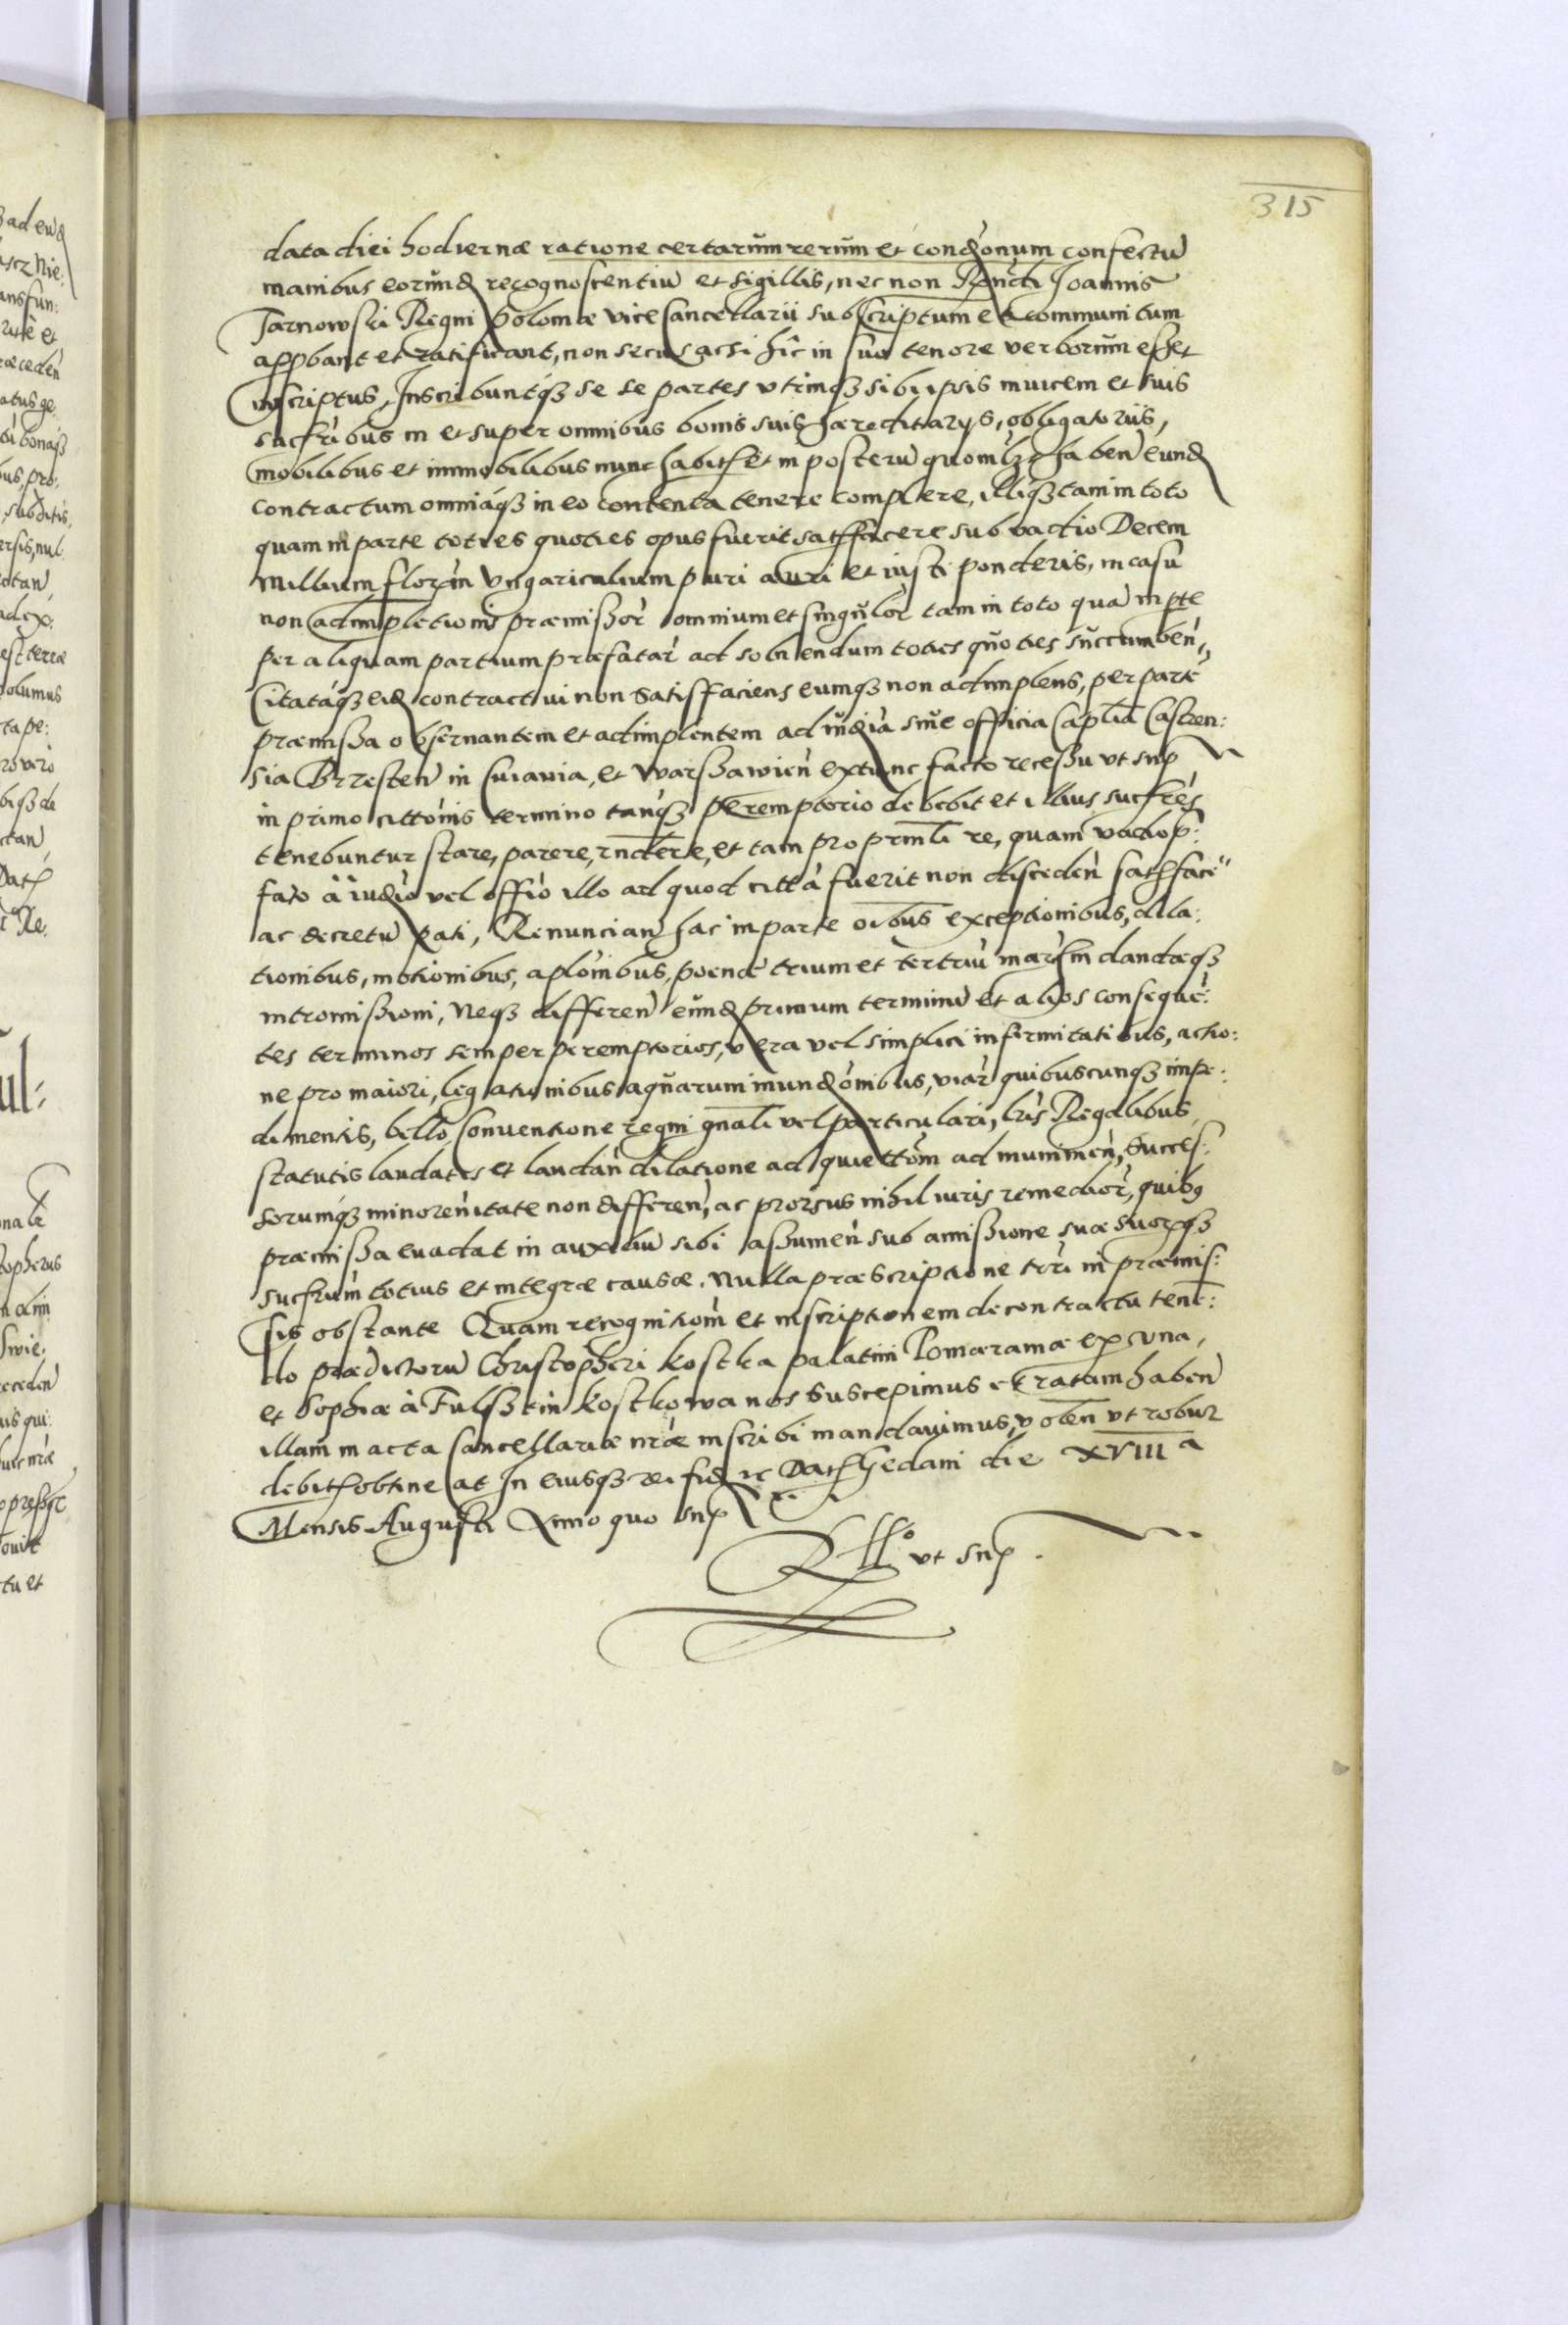 315
data diei hodiernæ ratione certarum rerum et condonum confectũ
manibus eorund recognoscentiũ et sigillis, nec non Rndi Joannis
Tarnowski Regni Poloniæ vice Cancellarii subscriptum et communitum
approbant et ratificant, non secus ac si hîc in suo tenore verborum esset
inscriptus, Inscribuntq se se partes utrinq sibi ipsis invicem et suis
sucfribus in et super omnibus bonis suis hæreditarys, obligatoriis,
mobilibus et immobilibus nunc habit et in posterũ quomlz haben eund
contractum omniaq in eo contenta tenere complere, illiq tam in toto
quam in parte toties quoties opus fuerit satffacere sub vadio Decem
Millium floren Vngaricalium puri auri et iusti ponderis, in casu
non adimpletionis præmissor omnium et singulor tam in toto quã in pte
per aliquam partium præfatar ad solvendum toties quoties succumben,
Citataq eid contractui non satisfaciens eumq non adimplens, per partẽ
præmissa observantem et adimplentem ad iudia sive officia Caplia Castren:
sia Bresten in Cuiavia, et Warschawien extunc facto recessu ut sup
in primo cittonis termino tanq peremptorio debebit et illius sucfres
tenebuntur stare, parere, rndere, et tam pro prnli re, quam vadio p:
fato à iudio vel offio illo ad quod citta fuerit non disceden satffacẽ
ac decretũ pati, Renuncian hac in parte oibus exceptionibus, dila:
tionibus, motionibus, aplonibus, poenæ trium et tertiũ marcm dandæq
intromissioni, Neq differen eund primum terminũ et alios conseque:
tes terminos semper peremptorios, vera vel simplici infirmitatibus, actio:
ne pro maiori, legationibus aquarum inundonibus, viar quibuscunq impe:
dimentis, bello, Conventione regni gnali vel particulari, lris Regalibus
statutis laudatis et laudan dilatione ad quiettom ad munimen, Succes:
sorumq minorenitate non differen, ac prorsus nihil iuris remedior, quibq
præmissa evadat in auxiliũ sibi assumen sub amissione suæ suorq
sucfrum totius et integræ causæ. Nulla præscriptione trri in præmis:
sis obstante Quam recognitiom et inscriptionem de contractu tenẽ:
do prædictorũ Christopheri Kostka palatini Pomæraniæ ex una,
et Sophiæ à Fulsztin Kostkowa nos suscepimus et ratam haben
illam in acta Cancellariæ nræ inscribi mandavimus, volen ut robur
debit obtineat In cuiusq rei fid etc Dat Gedani die XVIII a
Mensis Augusti Anno quo sup
Rllo ut sup.